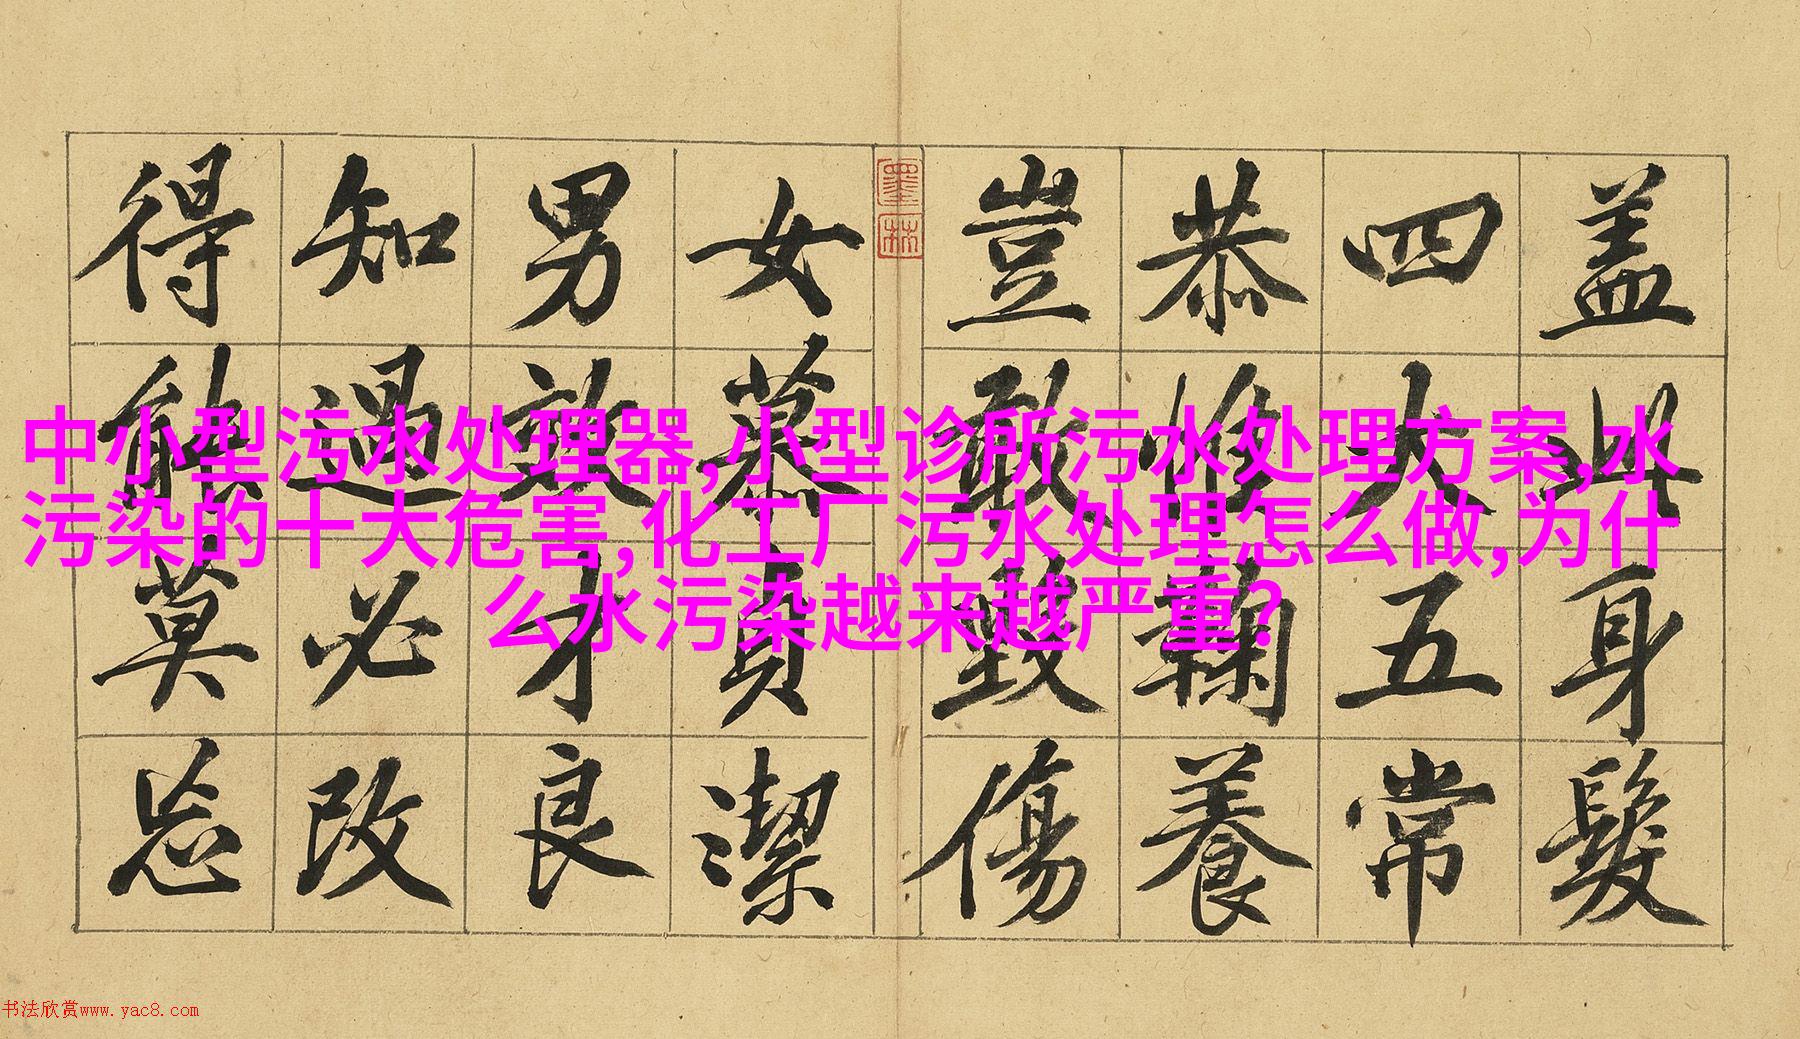 盖此身髮
四大五常
恭惟鞠養
豈敢毀傷
墨林
女慕貞潔
男效才良
知過必改
得能莫忘
中小型污水处理器,小型诊所污水处理方案,水
污染的十大危害,化工厂污水处理怎么做,为什
么水污染越来越严重?
书法欣赏www.yac8.com